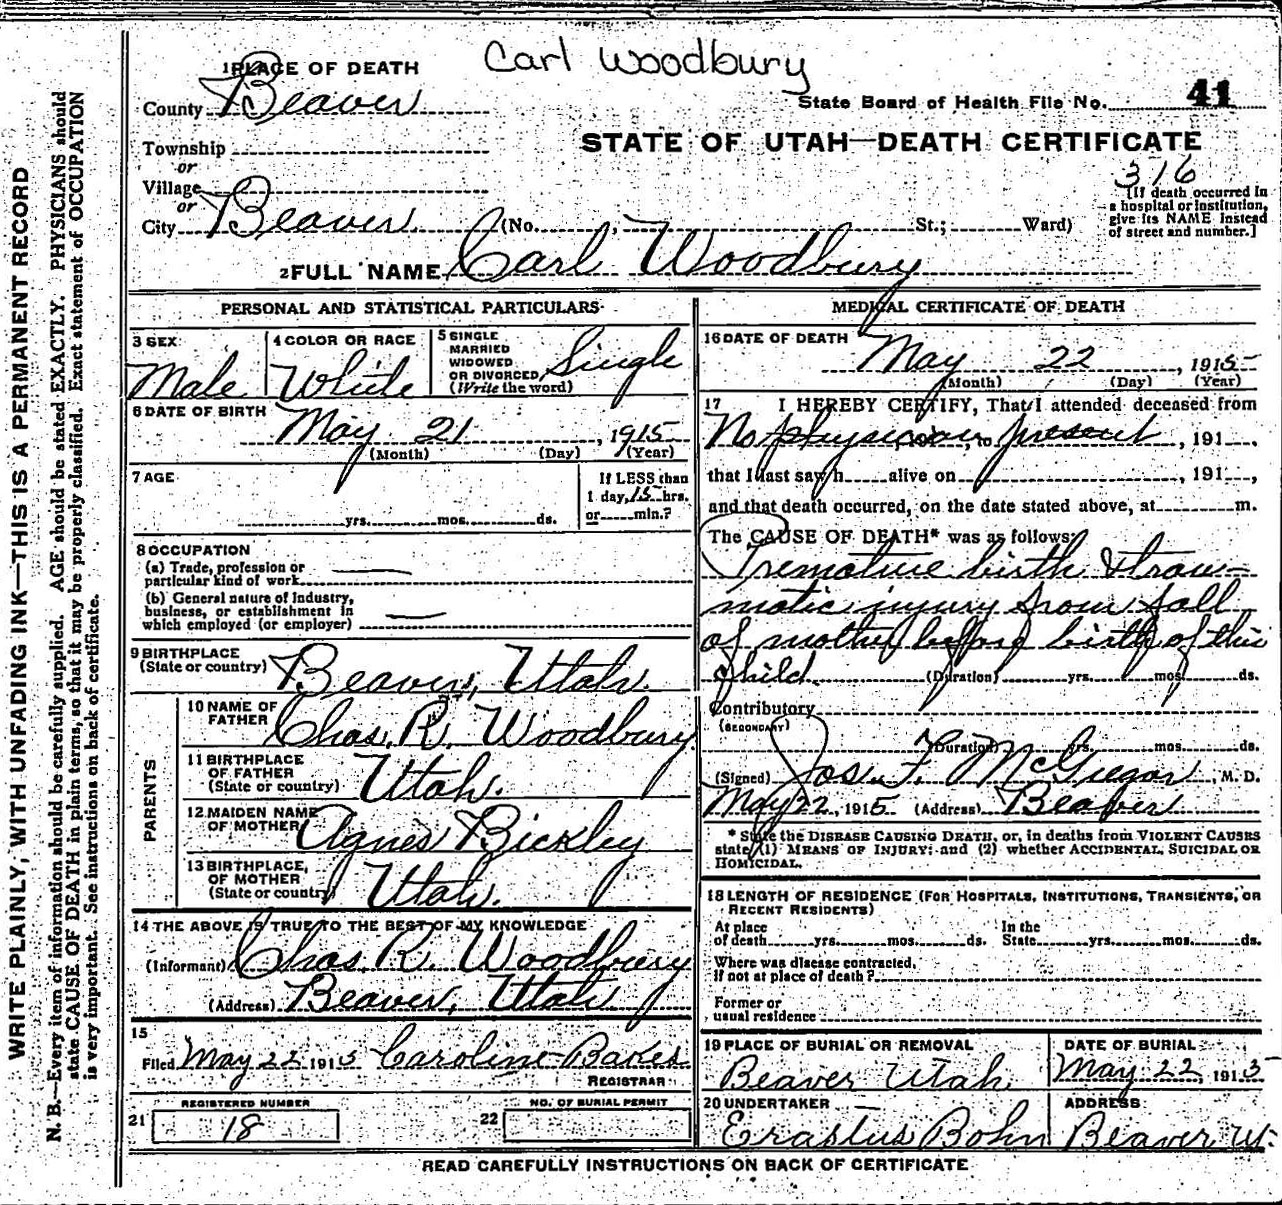 Carl Woodbury
1 PLACE OF DEATH
County Beaver
State Board of Health File No. 41
Township
STATE OF UTAH—DEATH CERTIFICATE
or
Village
316
[If death occurred in a hospital or institution, give its NAME instead of street and number.]
or
City Beaver (No. , St.; Ward)
2 FULL NAME Carl Woodbury
PERSONAL AND STATISTICAL PARTICULARS
3 SEX
Male
4 COLOR OR RACE
White
5 SINGLE
MARRIED
WIDOWED
OR DIVORCED
(Write the word)
Single
6 DATE OF BIRTH
May 21, 1915
(Month) (Day) (Year)
7 AGE
yrs. mos. ds.
If LESS than
1 day, 15 hrs.
or min.?
8 OCCUPATION
(a) Trade, profession or
particular kind of work
(b) General nature of Industry,
business, or establishment in
which employed (or employer)
9 BIRTHPLACE
(State or country) Beaver, Utah.
PARENTS
10 NAME OF
FATHER Chas. R. Woodbury
11 BIRTHPLACE
OF FATHER
(State or country) Utah.
12 MAIDEN NAME
OF MOTHER Agnes Bickley
13 BIRTHPLACE
OF MOTHER
(State or country) Utah.
14 THE ABOVE IS TRUE TO THE BEST OF MY KNOWLEDGE
(Informant) Chas. R. Woodbury
(Address) Beaver, Utah
15
Filed May 22 1915 Caroline Bakes
REGISTRAR
21
REGISTERED NUMBER
18
22
NO. OF BURIAL PERMIT
MEDICAL CERTIFICATE OF DEATH
16 DATE OF DEATH
May 22, 1915
(Month) (Day) (Year)
17 I HEREBY CERTIFY, That I attended deceased from
No physician, to present, 191 ,
that I last saw h alive on , 191 ,
and that death occurred, on the date stated above, at m.
The CAUSE OF DEATH* was as follows:
Premature birth & trau-
matic injury from fall
of mother before birth of this
child. (Duration) yrs. mos. ds.
Contributory
(SECONDARY)
(Duration) yrs. mos. ds.
(Signed) Jos. F. McGregor, M. D.
May 22, 1915 (Address) Beaver
* State the DISEASE CAUSING DEATH, or, in deaths from VIOLENT CAUSES
state (1) MEANS OF INJURY; and (2) whether ACCIDENTAL, SUICIDAL OR
HOMICIDAL.
18 LENGTH OF RESIDENCE (FOR HOSPITALS, INSTITUTIONS, TRANSIENTS, OR
RECENT RESIDENTS)
At place
of death yrs. mos. ds.
In the
State yrs. mos. ds.
Where was disease contracted,
if not at place of death?
Former or
usual residence
19 PLACE OF BURIAL OR REMOVAL
Beaver Utah
DATE OF BURIAL
May 22, 1915
20 UNDERTAKER
Erastus Bohn
ADDRESS
Beaver Ut.
READ CAREFULLY INSTRUCTIONS ON BACK OF CERTIFICATE
WRITE PLAINLY, WITH UNFADING INK—THIS IS A PERMANENT RECORD
N. B.—Every item of information should be carefully supplied. AGE should be stated EXACTLY. PHYSICIANS should
state CAUSE OF DEATH in plain terms, so that it may be properly classified. Exact statement of OCCUPATION
is very important. See instructions on back of certificate.